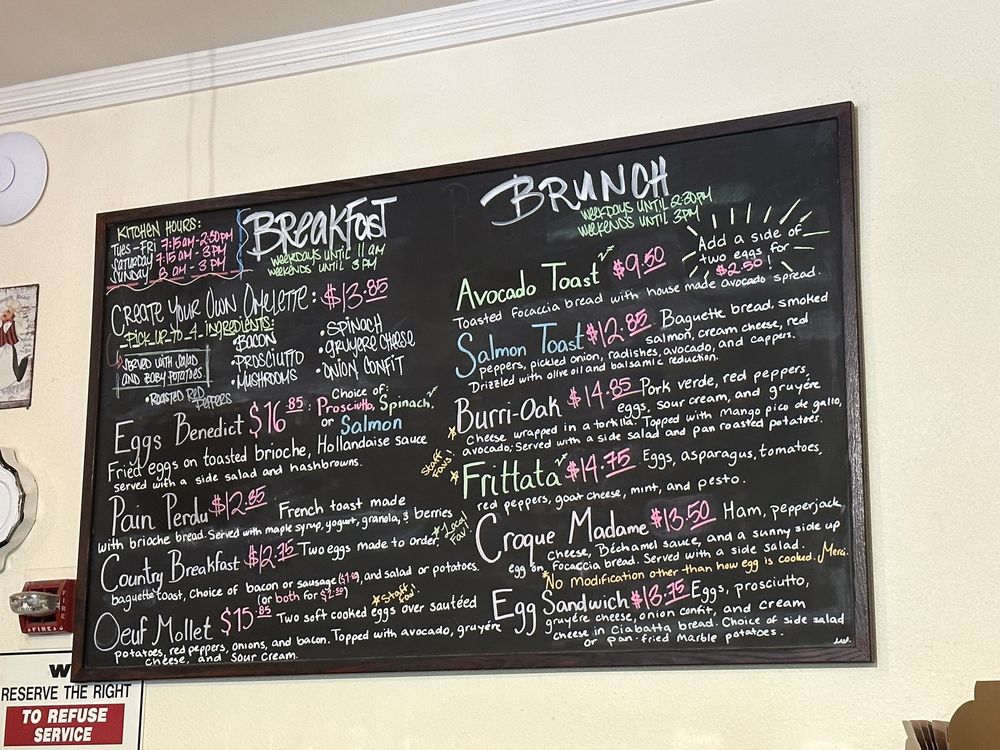 KITCHEN HOURS:
TUES-FRI 7:15AM-2:30PM
SATURDAY 7:15AM-3PM
SUNDAY 8AM-3PM
BREAKFAST
WEEKDAYS UNTIL 11AM
WEEKENDS UNTIL 3PM
CREATE YOUR OWN OMELETTE: $13.85
-PICK UP TO 4 INGREDIENTS:
SERVED WITH SALAD
AND BABY POTATOES
BACON
•PROSCIUTTO
•MUSHROOMS
•ROASTED RED
PEPPERS
•SPINACH
•GRUYERE CHEESE
•ONION CONFIT
Eggs Benedict $16.85: Choice of:
Prosciutto, Spinach,
or Salmon
Fried eggs on toasted brioche, Hollandaise sauce
served with a side salad and hashbrowns.
Pain Perdu $12.85 French toast made
with brioche bread. Served with maple syrup, yogurt, granola, & berries
Local
Fav!
Country Breakfast $12.75 Two eggs made to order,
baguette toast, Choice of bacon or sausage, and salad or potatoes.
(or both for $2.50)
Staff
Fav!
Oeuf Mollet $15.85 Two soft cooked eggs over sautéed
potatoes, red peppers, onions, and bacon. Topped with avocado, gruyére
cheese, and sour cream.
BRUNCH
WEEKDAYS UNTIL 2:30PM
WEEKENDS UNTIL 3PM
Add a side of
two eggs for
$2.50!
Avocado Toast $9.50
Toasted focaccia bread with house made avocado spread.
Salmon Toast $12.85 Baguette bread, smoked
salmon, cream cheese, red
peppers, pickled onion, radishes, avocado, and cappers.
Drizzled with olive oil and balsamic reduction.
Burri-Oak $14.85 Pork verde, red peppers,
eggs, sour cream, and gruyére
Cheese wrapped in a tortilla. Topped with mango pico de gallo,
avocado; Served with a side salad and pan roasted potatoes.
Staff
Fav!
Frittata $14.75 Eggs, asparagus, tomatoes,
red peppers, goat cheese, mint, and pesto.
Croque Madame $13.50 Ham, pepperjack,
cheese, Béchamel sauce, and a sunny side up
egg on focaccia bread. Served with a side salad.
*No modification other than how egg is cooked. Merci.
Egg Sandwich $13.75 Eggs, prosciutto,
gruyére cheese, onion confit, and cream
cheese in Ciabatta bread. Choice of side salad
or pan-fried marble potatoes.
FIRE
FIRE
W
RESERVE THE RIGHT
TO REFUSE
SERVICE